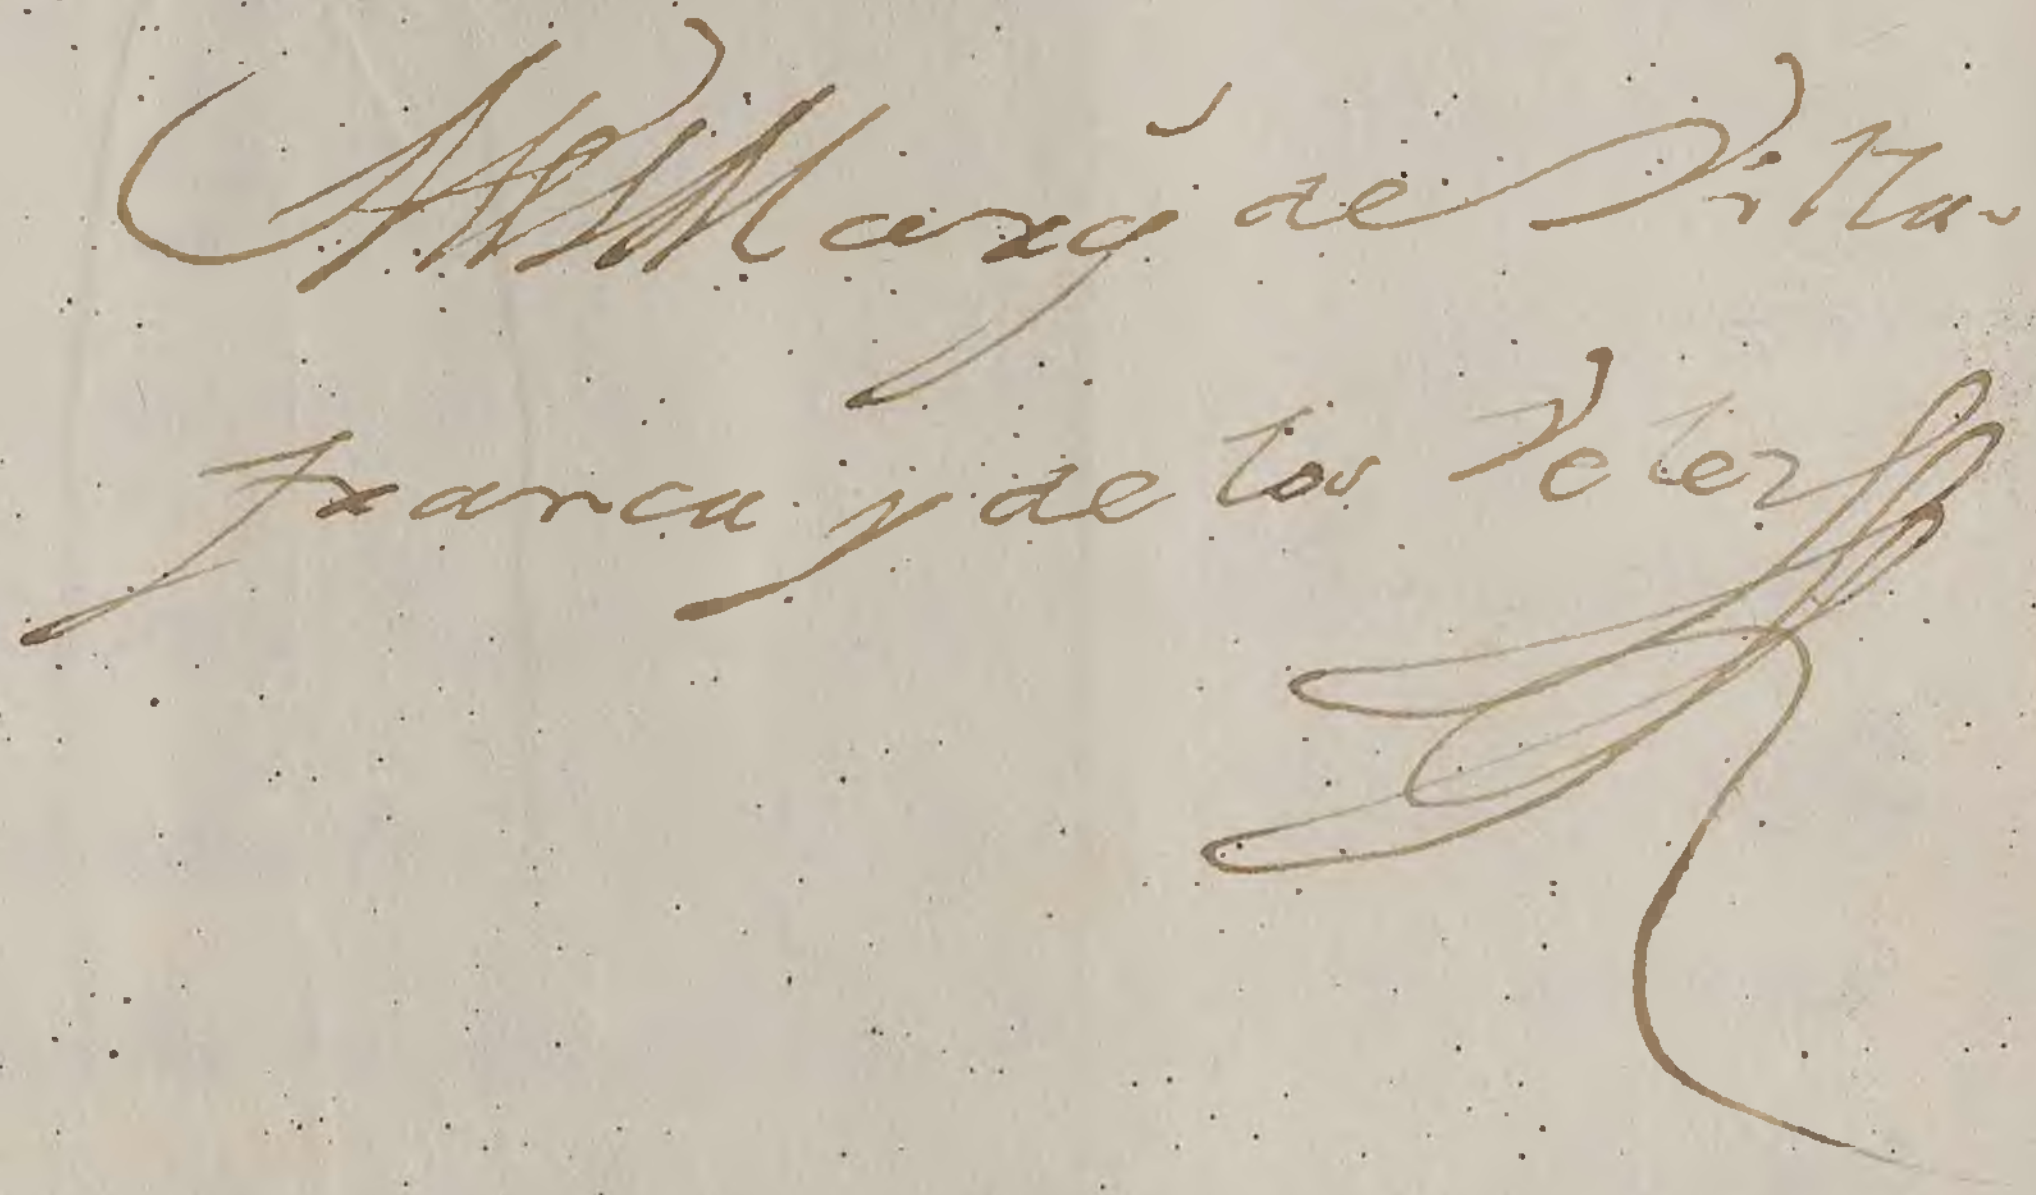 El Marq̃ de Villa-
franca y de los Velez